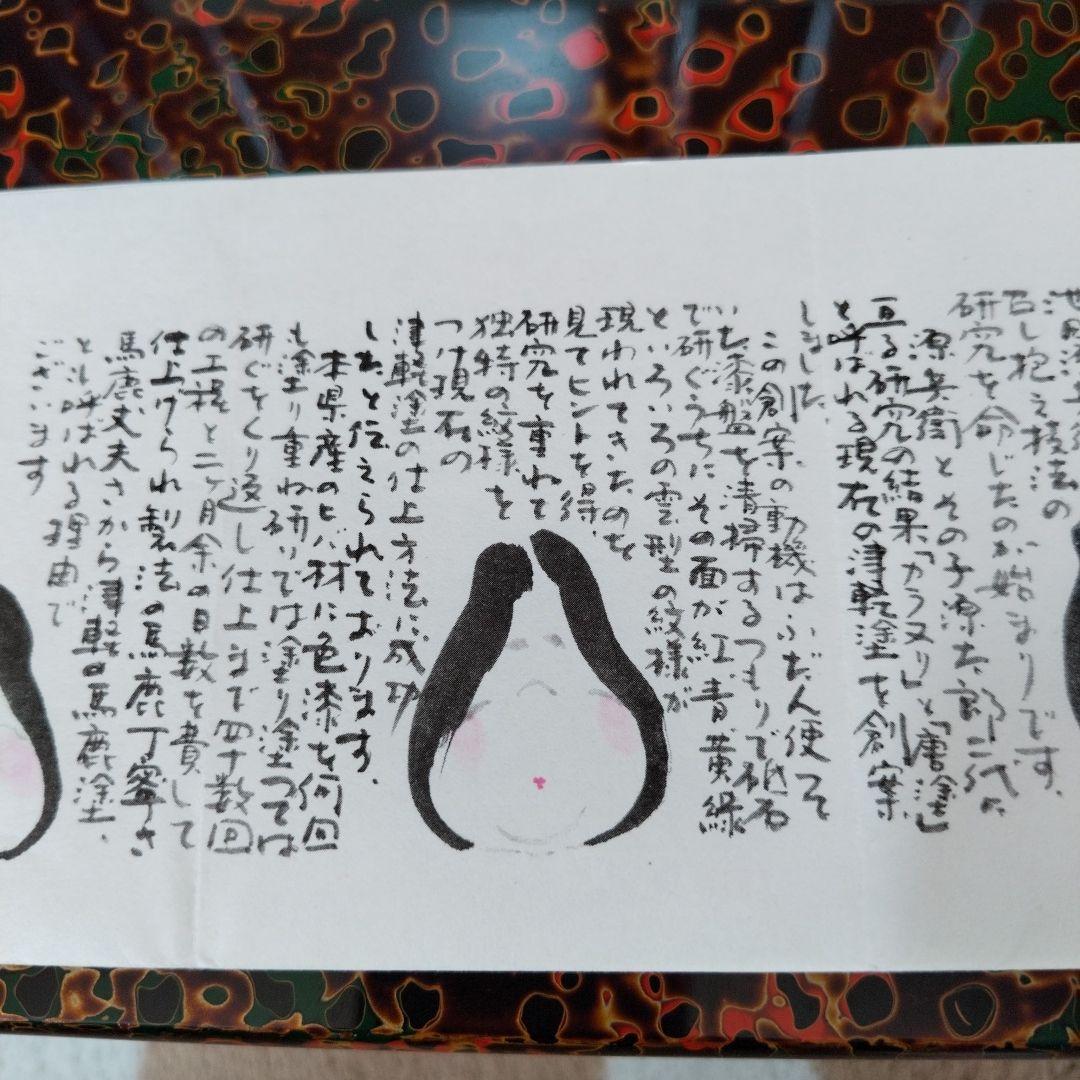 召し抱え技法の
研究を命じたのが始まりです。
源兵衛とその子源太郎二代に
亘る研究の結果「からヌリ」と「唐塗」
と呼ばれる現在の津軽塗を創案
しました。
この創案の動機はふだん使そ
いた漆盤を清掃するつもりで砥石
で研ぐうちにその面が紅、青、黄、緑
といろいろの雲型の紋様が
現われてきたのを
見てヒントを得、
研究を重ねて
独特の紋様を
つけ現在の
津軽塗の仕上方法に成功
したと伝えられております。
本県産のヒバ材に色漆を何回
も塗り重ね研いでは塗り塗っては
研ぐをくり返し仕上まで四十数回
の工程と二ヶ月余の日数を費して
仕上げられ製法の馬鹿丁寧さ
馬鹿丈夫さから津軽の馬鹿塗、
とし呼ばれる理由で
ございます